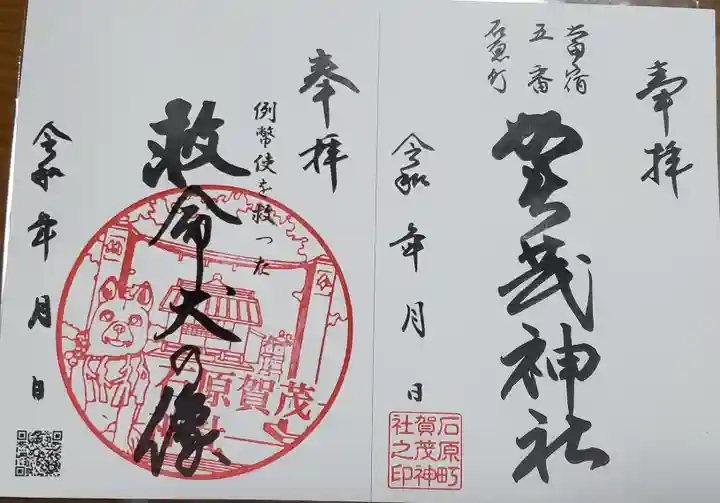 奉拝
當宿
五番
石原町
賀茂神社
令和 年 月 日
石原町
賀茂神
社之印
奉拝
例幣使を救った
救命犬の像
石原賀茂
令和 年 月 日